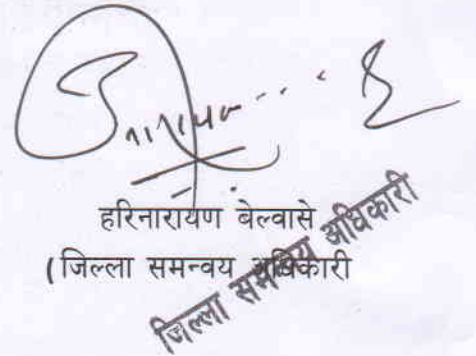 हरिनारायण बेल्वासे
(जिल्ला समन्वय अधिकारी
जिल्ला समन्वय अधिकारी